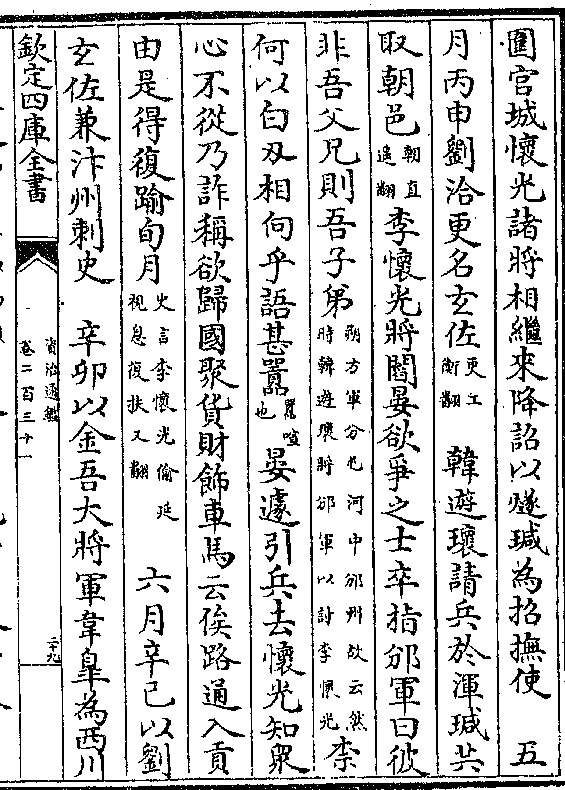 圍宫城懷光諸將相繼來降詔以燧瑊為招撫使 五
月丙申劉洽更名玄佐更工衡翻 韓遊瓌請兵於渾瑊共
取朝邑朝直遥翻李懷光將閻晏欲爭之士卒指邠軍曰彼
非吾父兄則吾子弟朔方軍分屯河中邠州故云然時韓遊瓌將邠軍以討李懷光柰
何以白刃相向乎語甚囂囂喧也晏遽引兵去懷光知衆
心不從乃詐稱欲歸國聚貨財飾車馬云俟路通入貢
由是得復踰旬月史言李懷光偷延視息復扶又翻 六月辛巳以劉
玄佐兼汴州刺史 辛卯以金吾大將軍韋臯為西川
欽定四庫全書
資治通鑑
卷二百三十一
二十九